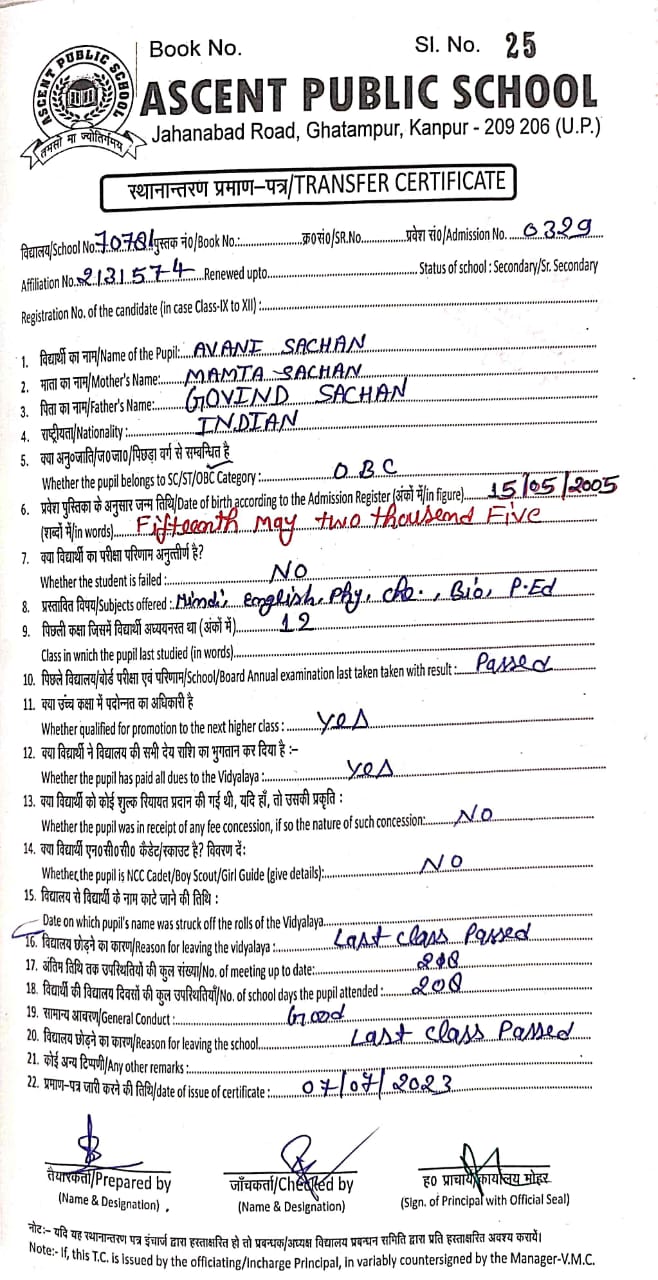 Book No. Sl. No. 25
ASCENT PUBLIC SCHOOL
तमसो मा ज्योतिर्गमय
ASCENT PUBLIC SCHOOL
Jahanabad Road, Ghatampur, Kanpur - 209 206 (U.P.)
स्थानान्तरण प्रमाण–पत्र/TRANSFER CERTIFICATE
विद्यालय/School No. 70781 पुस्तक नं०/Book No.:.................क्र०सं०/SR.No...............प्रवेश सं०/Admission No. ....0329
Affiliation No. 2131574 Renewed upto.................... Status of school : Secondary/Sr. Secondary
Registration No. of the candidate (in case Class-IX to XII) :....................
1. विद्यार्थी का नाम/Name of the Pupil: AVANI SACHAN
2. माता का नाम/Mother's Name: MAMTA SACHAN
3. पिता का नाम/Father's Name: GOVIND SACHAN
4. राष्ट्रीयता/Nationality : INDIAN
5. क्या अनु०जाति/ज०जा०/पिछड़ा वर्ग से सम्बन्धित है
Whether the pupil belongs to SC/ST/OBC Category : OBC
6. प्रवेश पुस्तिका के अनुसार जन्म तिथि/Date of birth according to the Admission Register (अंकों में/in figure) 15/05/2005
(शब्दों में/in words) Fifteenth May two thousend Five
7. क्या विद्यार्थी का परीक्षा परिणाम अनुत्तीर्ण है?
Whether the student is failed : NO
8. प्रस्तावित विषय/Subjects offered : Hindi, English, Phy, Che., Bio, P.Ed
9. पिछली कक्षा जिसमें विद्यार्थी अध्ययनरत था (अंकों में) 12
Class in wnich the pupil last studied (in words)....................
10. पिछले विद्यालय/बोर्ड परीक्षा एवं परिणाम/School/Board Annual examination last taken taken with result : Passed
11. क्या उच्च कक्षा में पदोन्नत का अधिकारी है
Whether qualified for promotion to the next higher class : Yes
12. क्या विद्यार्थी ने विद्यालय की सभी देय राशि का भुगतान कर दिया है :–
Whether the pupil has paid all dues to the Vidyalaya : Yes
13. क्या विद्यार्थी को कोई शुल्क रियायत प्रदान की गई थी, यदि हाँ, तो उसकी प्रकृति :
Whether the pupil was in receipt of any fee concession, if so the nature of such concession: NO
14. क्या विद्यार्थी एन०सी०सी० कैडेट/स्काउट है? विवरण दें:
Whether,the pupil is NCC Cadet/Boy Scout/Girl Guide (give details): NO
15. विद्यालय से विद्यार्थी के नाम काटे जाने की तिथि :
Date on which pupil's name was struck off the rolls of the Vidyalaya....................
16. विद्यालय छोड़ने का कारण/Reason for leaving the vidyalaya : Last class Passed
17. अंतिम तिथि तक उपस्थितियों की कुल संख्या/No. of meeting up to date:
18. विद्यार्थी की विद्यालय दिवसों की कुल उपस्थितियाँ/No. of school days the pupil attended : 208
19. सामान्य आवरण/General Conduct : Good
20. विद्यालय छोड़ने का कारण/Reason for leaving the school Last class Passed
21. कोई अन्य टिप्पणी/Any other remarks :....................
22. प्रमाण–पत्र जारी करने की तिथि/date of issue of certificate : 07/07/2023
तैयारकर्ता/Prepared by जाँचकर्ता/Checked by ह० प्राचार्य/कार्यालय मोहर
(Name & Designation) (Name & Designation) (Sign. of Principal with Official Seal)
नोट:– यदि यह स्थानान्तरण पत्र इंचार्ज द्वारा हस्ताक्षरित हो तो प्रबन्धक/अध्यक्ष विद्यालय प्रबन्धन समिति द्वारा प्रति हस्ताक्षरित अवश्य करायें।
Note:- If, this T.C. is issued by the officiating/Incharge Principal, in variably countersigned by the Manager-V.M.C.